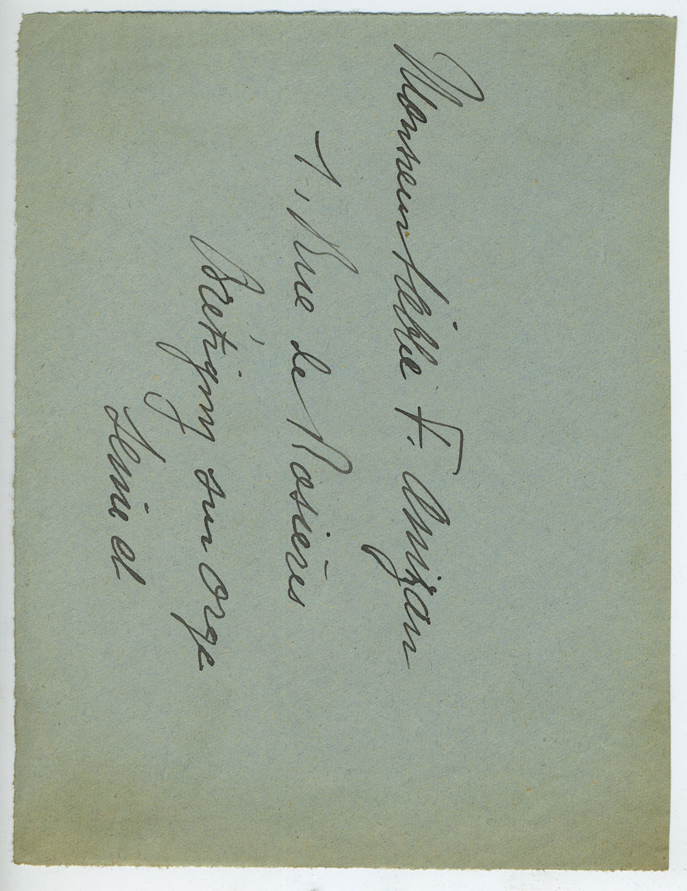 Monsieur F. Anizan
1, Rue de Rosières
Brétigny sur Orge
Seine et